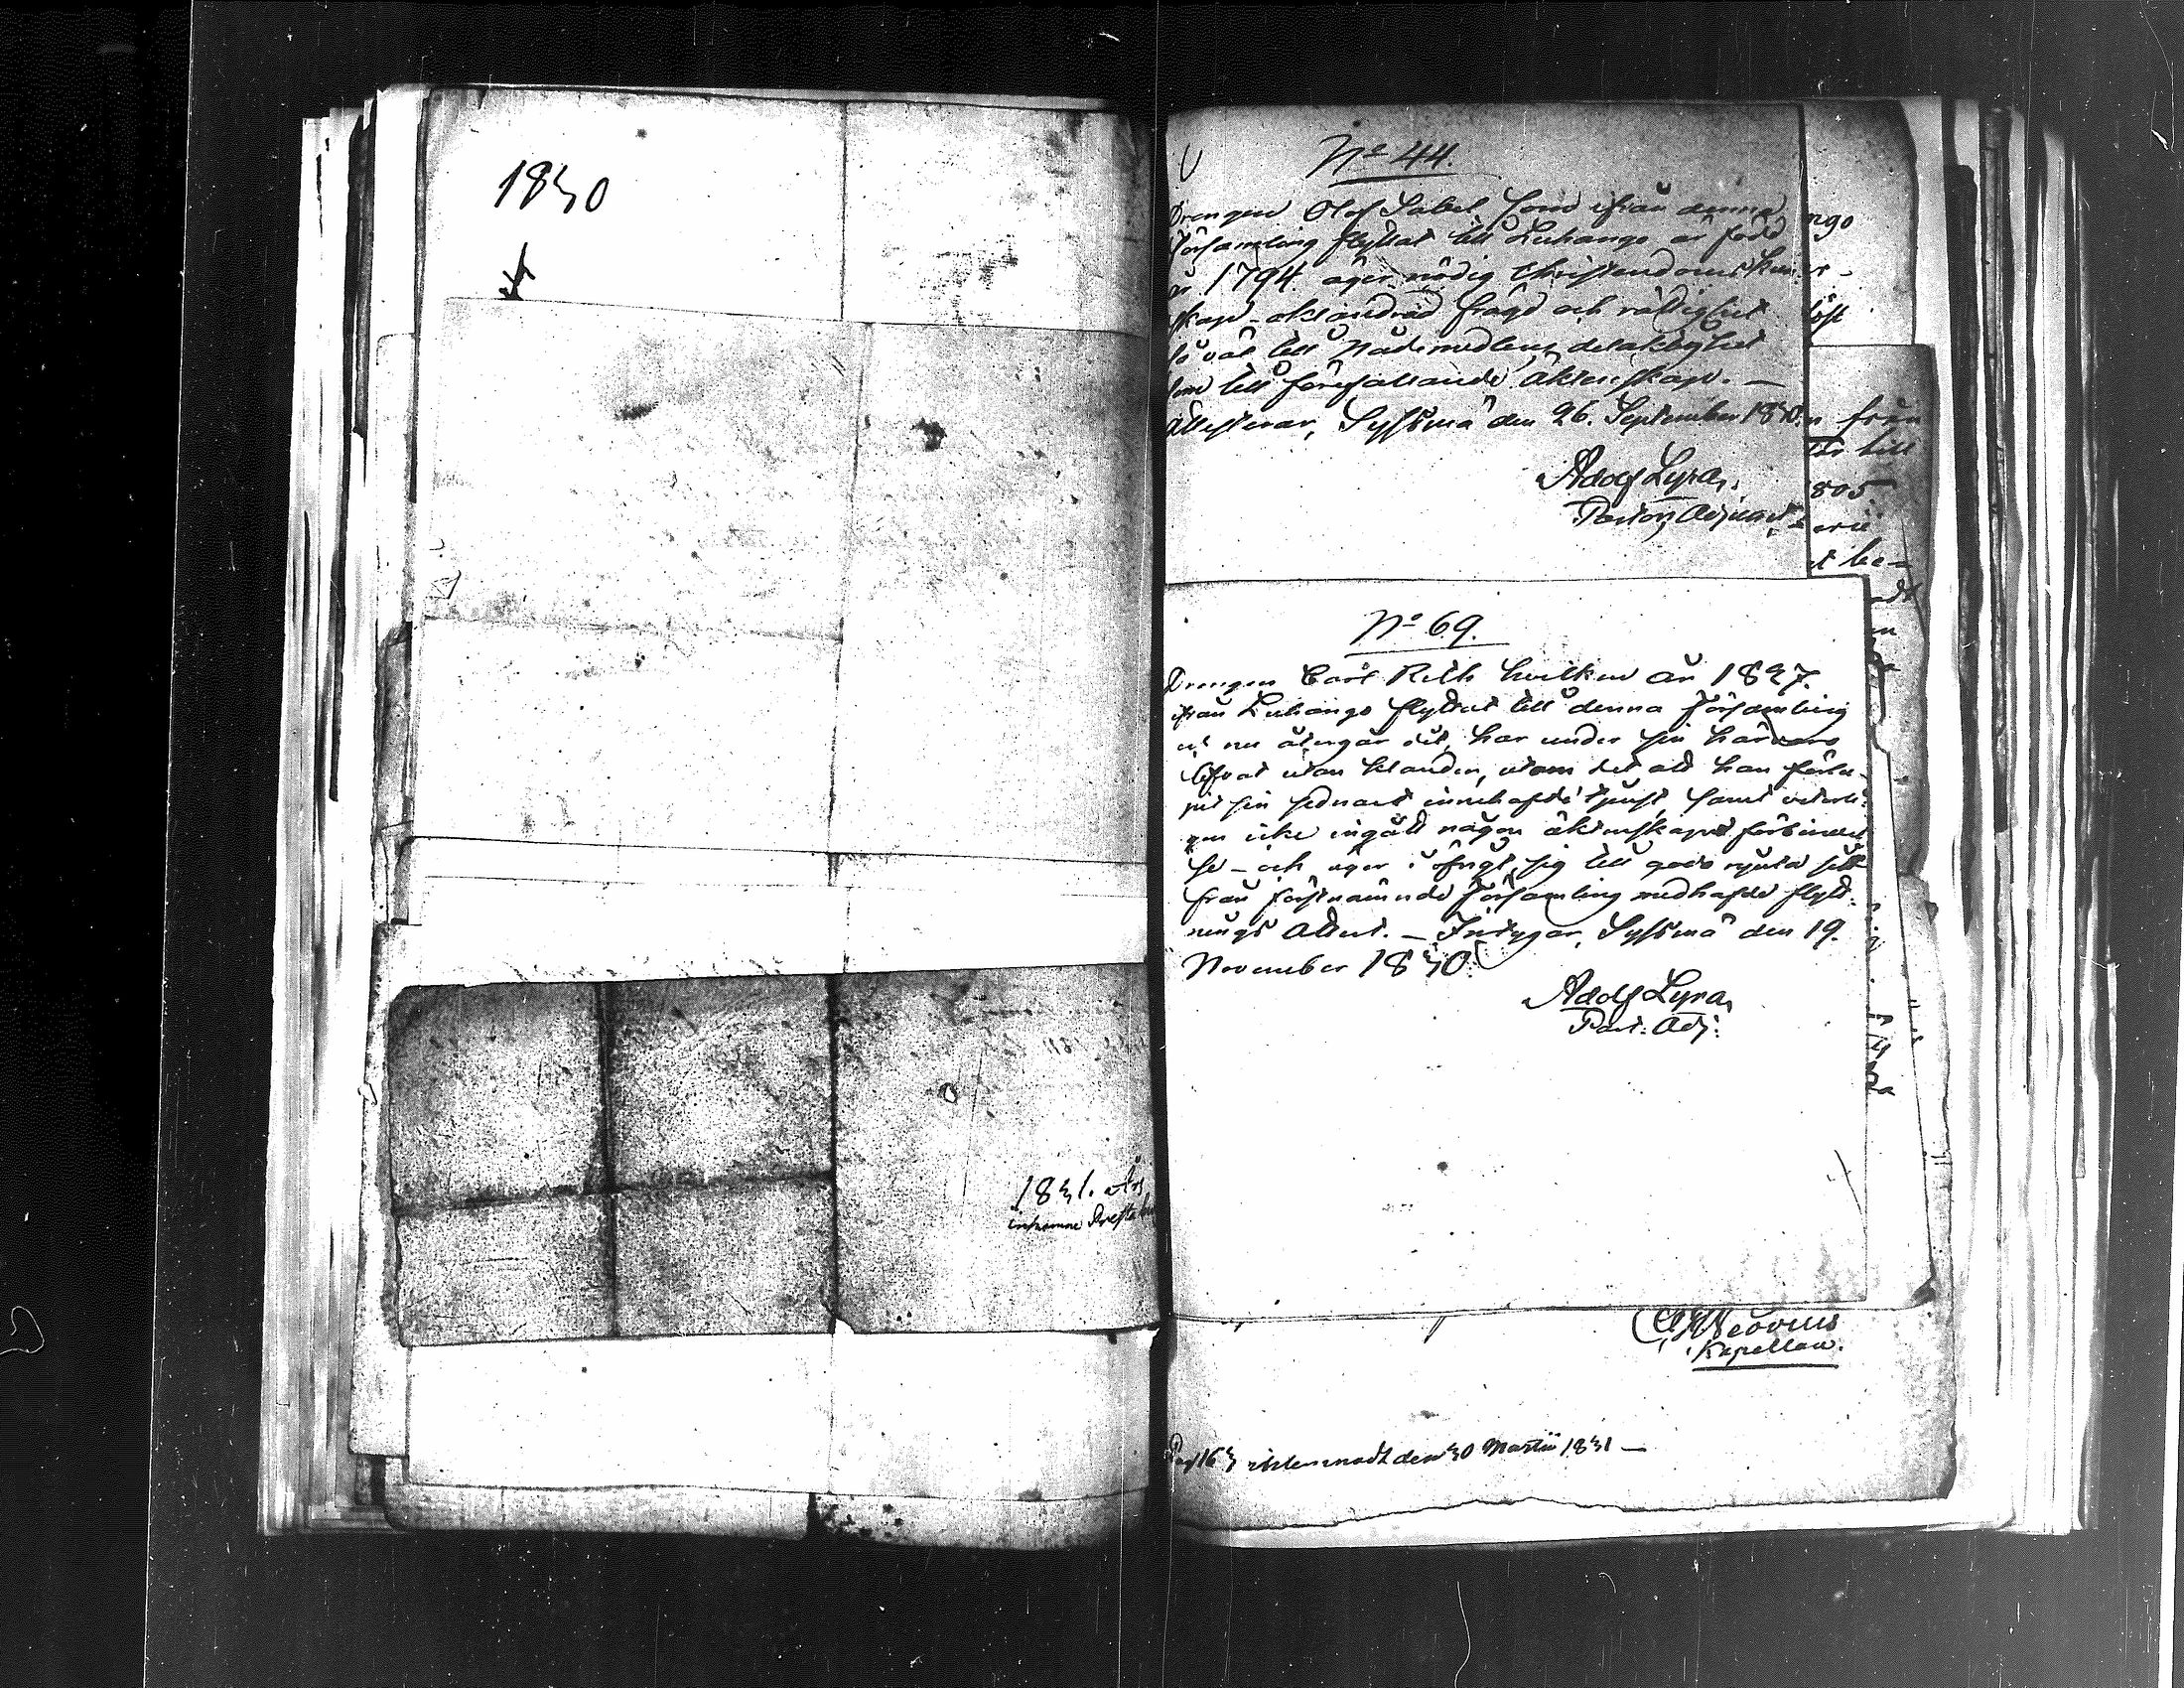 1830
1831. Års
inkomne
No 44.
Drengen Olof Sabel som ifrån denna
Församling flyttat till Luhango är född
år 1794. äger nödig Christendoms kun-
skap, oklandrad frägd och rättighet
så väl till Nådemedlens delaktighet
som till förefallande äktenskap. —
Attesterar, Syssmä den 26. September 1830.
Adolf Lyra,
Pastors Adjunct.
No 69.
Drengen Carl Reth hvilken år 1827.
ifrån Luhango flyttat till denna församling
och nu återgår dit, har under sin härvaro
lefvat utan klander, utom det att han förlu-
pit sin sednast innehafda tjenst, samt veterli-
gen icke ingått någon äktenskaps förbindel
se — och äger i öfrigt sig till godo njuta sitt
från förstnämnde församling medhafde flytt-
nings Attest. — Intygar, Syssmä den 19.
November 1830.
Adolf Lyra,
Past: Adj:
ngo
från
till
1805.
be-
Kapellan.
Pag 163 den 30 Martii 1831 —